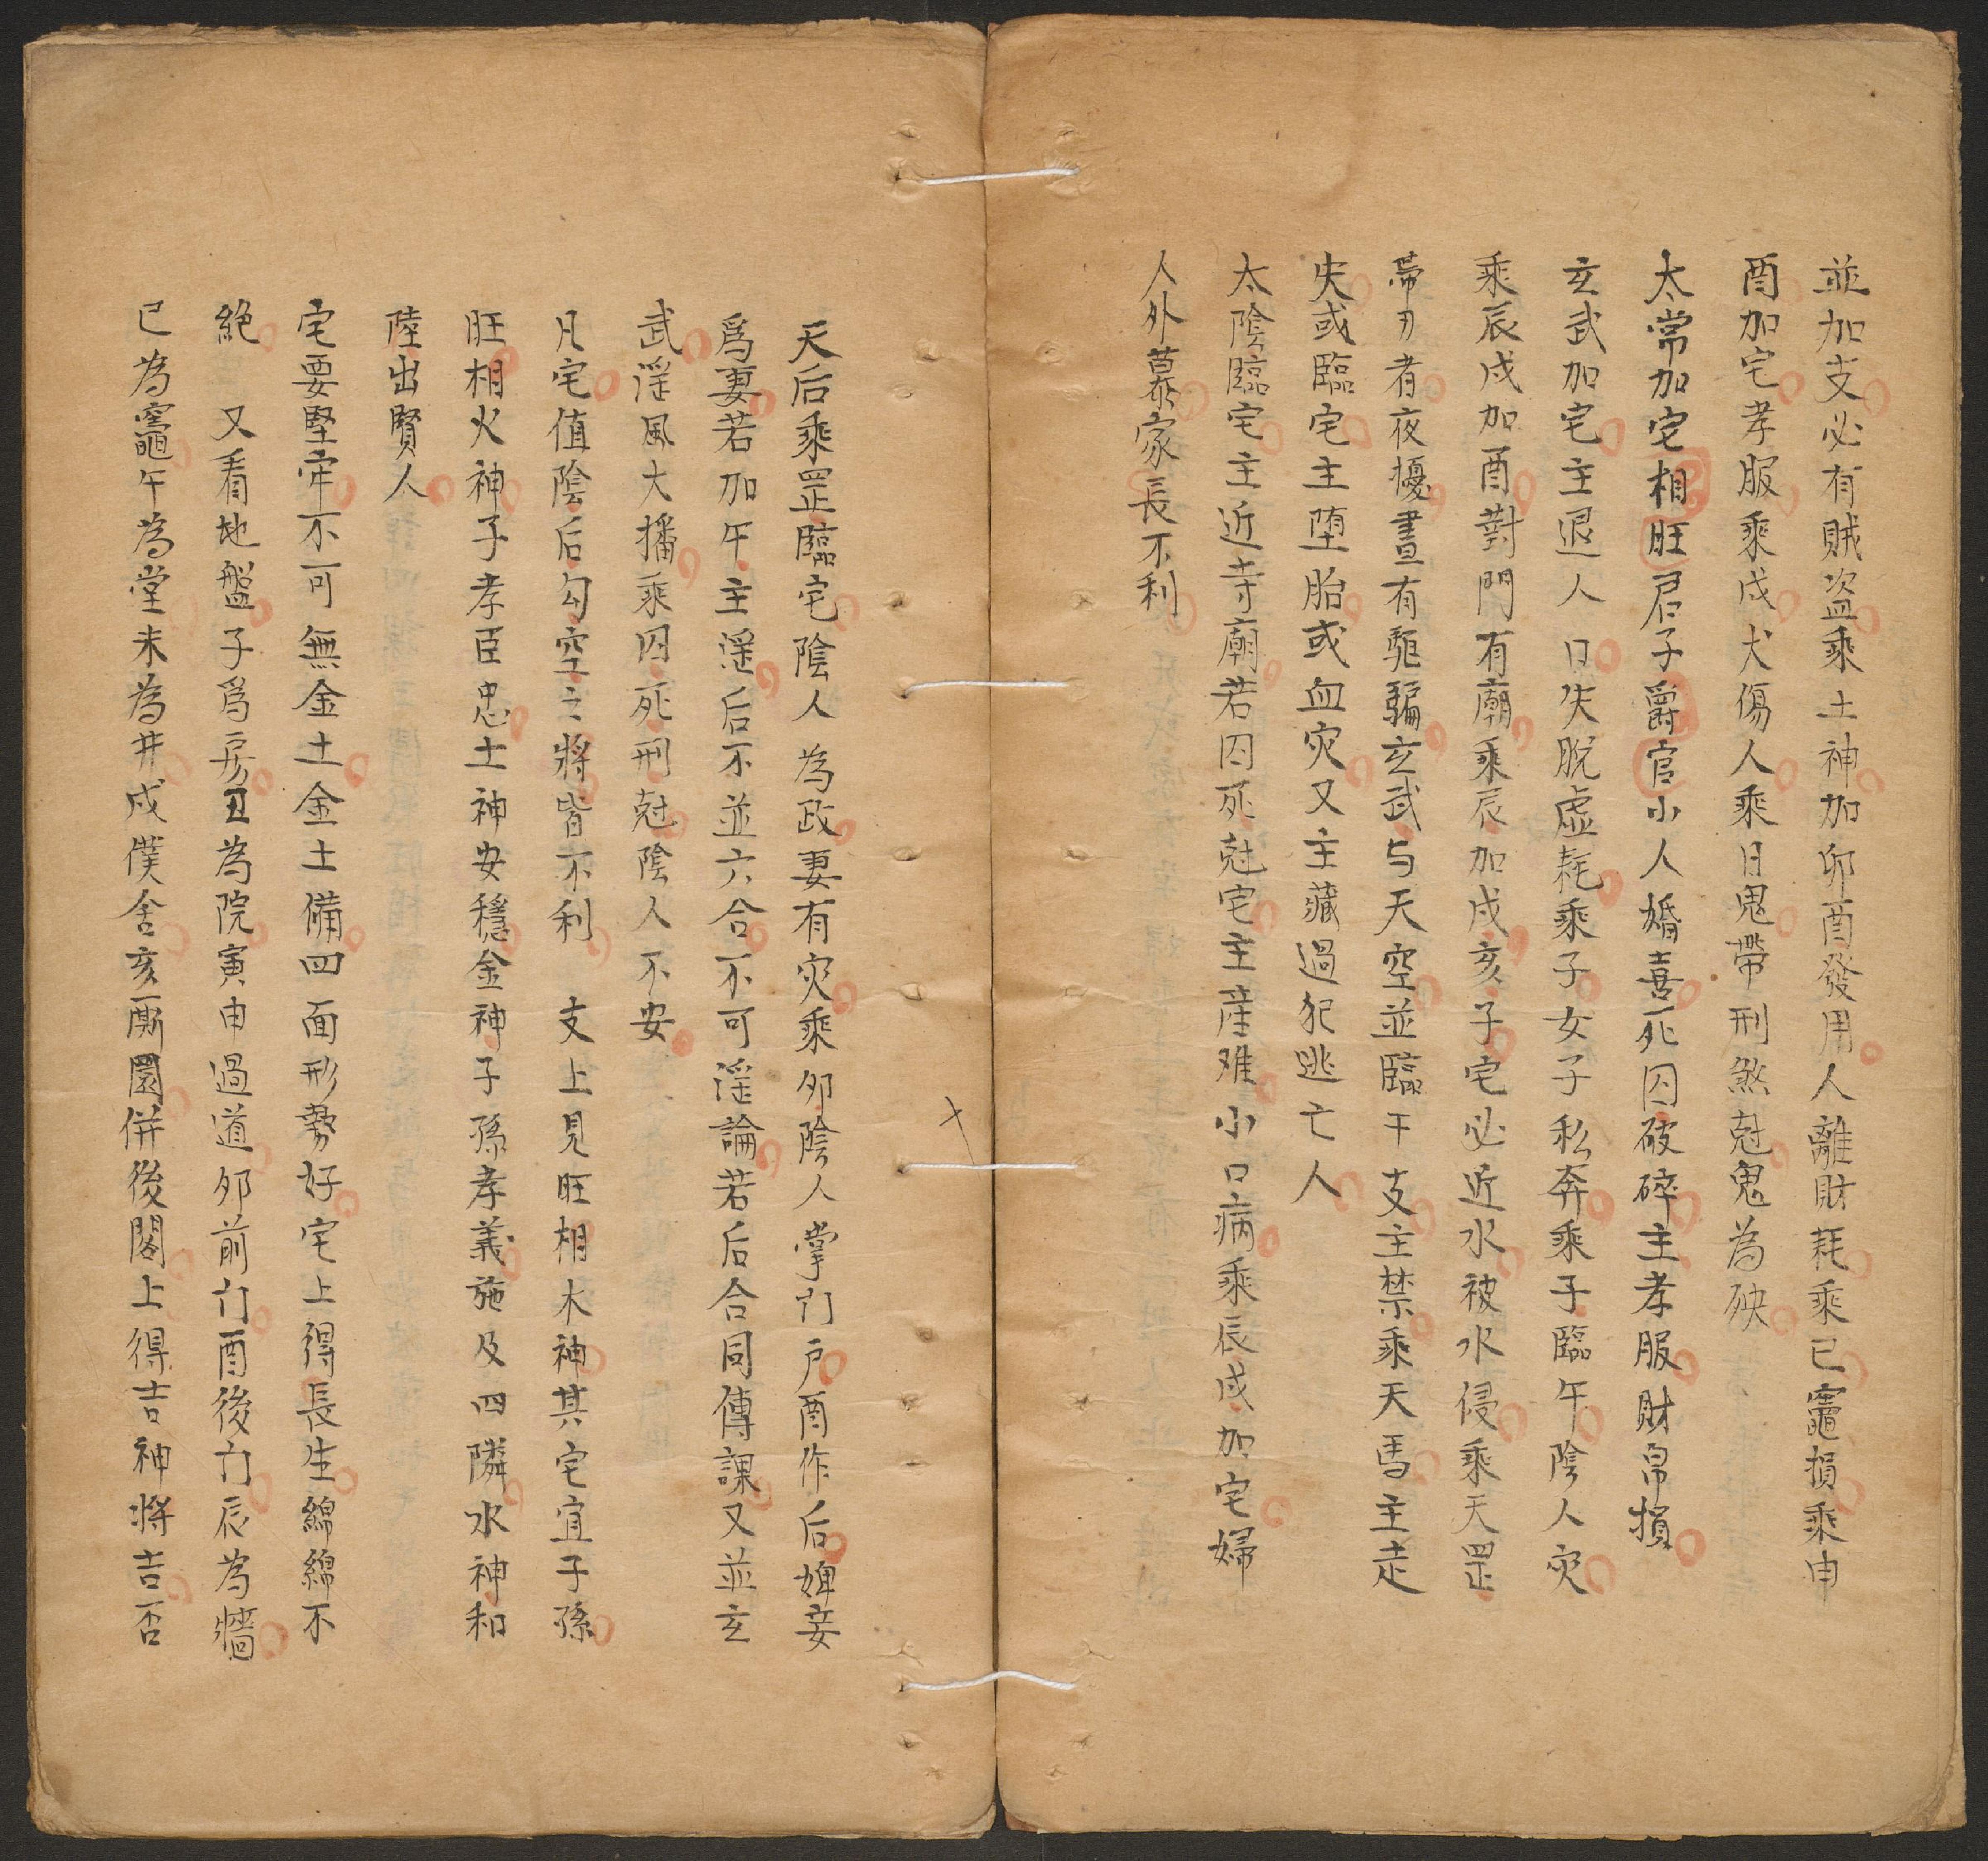 並加支必有賊盗乘土神加卯酉發用人離財耗乘巳竈損乘申
酉加宅孝服乘戌犬傷人乘日鬼帶刑煞尅鬼為殃
太常加宅相旺君子爵官小人婚喜死囚破碎主孝服財帛損
玄武加宅主退人口失脫虛耗乘子女子私奔乘子臨午陰人灾
乘辰戌加酉對門有廟乘辰加戌亥子宅必近水被水侵乘天罡
帶刃者夜擾晝有驅騙玄武与天空並臨干支主禁乘天馬主走
失或臨宅主堕胎或血灾又主藏過犯逃亡人
太陰臨宅主近寺廟若囚死尅宅主産难小口病乘辰戌加宅婦
人外慕家長不利
天后乘罡臨宅陰人為政妻有灾乘夘陰人掌门户酉作后婢妾
爲妻若加午主滛后不並六合不可淫論若后合同傳課又並玄
武淫風大播乘囚死刑尅陰人不安
凡宅值陰后勾空之將皆不利 支上見旺相木神其宅宜子孫
旺相火神子孝臣忠土神安穩金神子孫孝義施及四隣水神和
陸出賢人
宅要堅牢不可無金土金土備四面形勢好宅上得長生綿綿不
絕 又看地盤子爲房丑為院寅申過道夘前门酉後门辰為牆
巳為竈午為堂未為井戌僕舍亥厮圂併後閣上得吉神將吉否